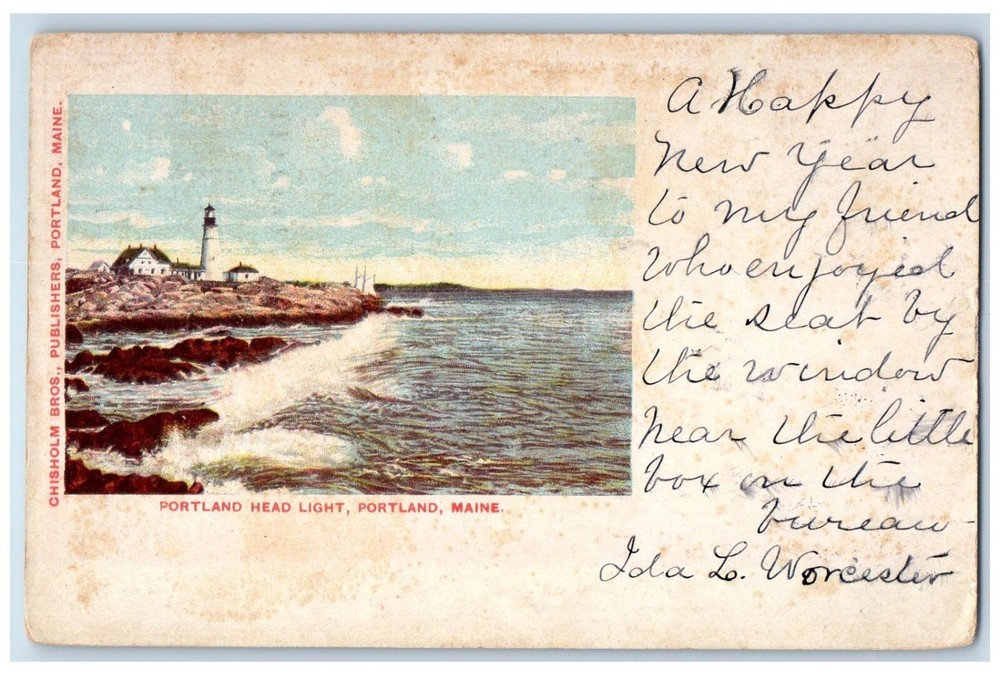 CHISHOLM BROS., PUBLISHERS, PORTLAND, MAINE.
A Happy
New Year
to my friend
who enjoyed
the seat by
the window
near the little
box on the
bureau
Ida L. Worcester
PORTLAND HEAD LIGHT, PORTLAND, MAINE.